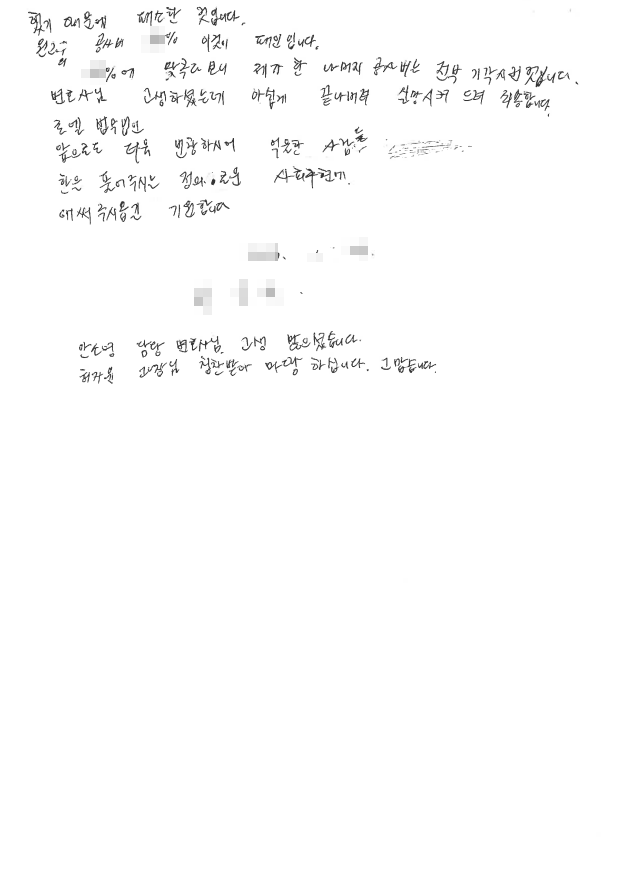 했기 때문에 패소한 것입니다.
원고의 공사비 % 이것이 패인입니다.
%에 맞추다 보니 제가 한 나머지 공사비는 전부 기각시킨 것입니다.
변호사님 고생하셨는데 아쉽게 끝나버려 실망시켜 드려 죄송합니다.
로엘 법무법인
앞으로도 더욱 번창하시어 억울한 사람들
한을 풀어주시는 정의로운 사회구현에.
애써 주시옵길 기원합니다
안소영 담당 변호사님. 고생 많으셨습니다.
허자윤 과장님 칭찬받아 마땅 하십니다. 고맙습니다.